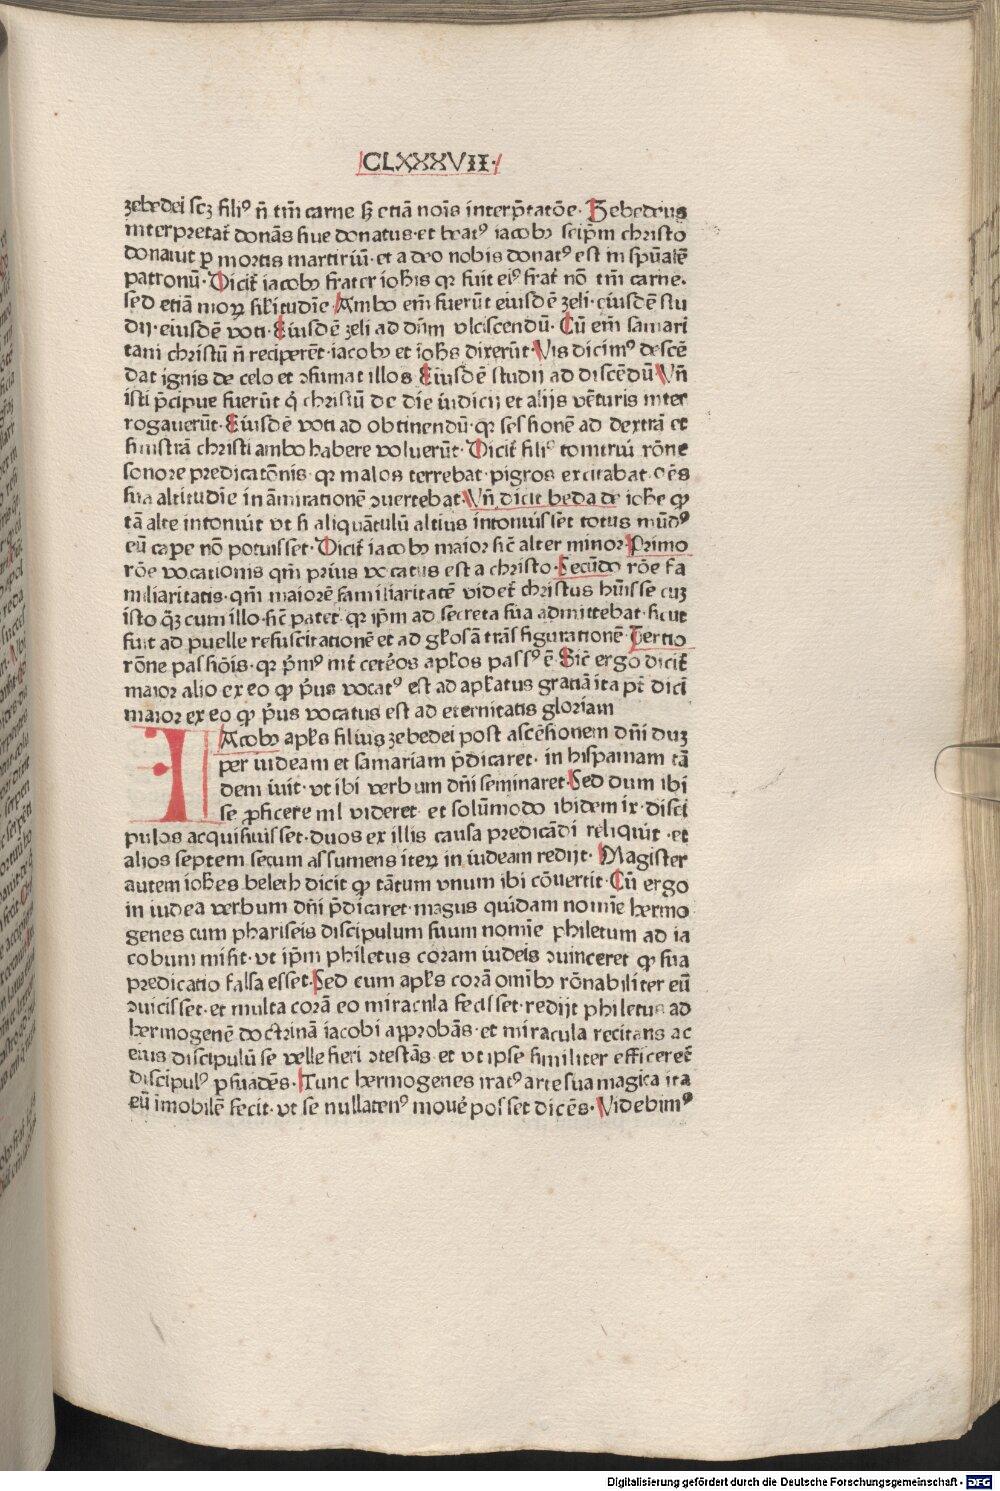 CLXXXVII·
zebedei scꝫ filiꝰ n̄ tm̄ carne sꝫ etiā noīs interp̄tatōe· Zebedeus
interpretat̄ donās siue donatus·et beatꝰ iacobꝰ seip̄m christo
donauit ꝑ mortis martiriū·et a deo nobis donatꝰ est in spūalē
patronū· Dicit̄ iacobꝰ frater ioh̄is qꝛ fuit eiꝰ frat̄ nō tm̄ carne·
sed etiā moꝝ sil̄itudīe· Ambo em̄ fuerūt eiusdē zeli·eiusdē stu
dij·eiusdē voti·Eiusdē zeli ad dn̄m vlciscendū· Cū em̄ samari
tani christū n̄ reciperēt·iacobꝰ et ioh̄s dixerūt·Vis dicimꝰ descē
dat ignis de celo et ↄsumat illos Eiusdē studij ad discēdū Vn̄
isti p̄cipue fuerūt q̄ christū de die iudicij et alijs vēturis inter
rogauerūt·Eiusdē voti ad obtinendū·qꝛ sessionē ad dextrā et
sinistrā christi ambo habere voluerūt· Dicit̄ filiꝰ tonitrui rōne
sonore predicatōnis·qꝛ malos terrebat·pigros excitabat·oēs
sua altitudīe in āmirationē ↄuertebat·Vn̄ dicit beda de ioh̄e ꝙ
tā alte intonuit vt si aliquātulū altius intonuisset totus mūdꝰ
eū cape nō potuisset· Dicit̄ iacobꝰ maior sic̄ alter minor·Primo
rōe vocationis qm̄ prius vocatus est a christo·Secūdo rōe fa
miliaritatis·qm̄ maiorē familiaritatē videt̄ christus huīsse cuꝫ
isto q̄ꝫ cum illo·sic̄ patet·qꝛ ip̄m ad secreta sua admittebat·sicut
fuit ad puelle resuscitationē et ad gl̄osā trāsfigurationē·Tertio
rōne passiōis·qꝛ p̄mꝰ int̄ ceteros apl̄os passꝰ ē·Sic̄ ergo dicit̄
maior alio ex eo ꝙ p̄us vocatꝰ est ad apl̄atus gratiā ita pt̄ dici
maior ex eo ꝙ p̄us vocatus est ad eternitatis gloriam
IAcobꝰ apl̄s filius zebedei post ascēsionem dn̄i duꝫ
per iudeam et samariam p̄dicaret· in hispaniam tā
dem iuit·vt ibi verbum dn̄i seminaret·Sed dum ibi
se ꝓficere nil videret et solūmodo ibidem ix·disci
pulos acquisiuisset·duos ex illis causa predicādi reliquit·et
alios septem secum assumens iteꝝ in iudeam redijt· Magister
autem ioh̄es beleth dicit ꝙ tātum vnum ibi cōuertit·Cū ergo
in iudea verbum dn̄i p̄dicaret·magus quidam nomīe hermo
genes cum phariseis discipulum suum nomīe philetum ad ia
cobum misit·vt ip̄m philetus coram iudeis ↄuinceret ꝙ sua
predicatio falsa esset·Sed cum apl̄s corā omībꝰ rōnabiliter eū
ↄuicisset·et multa corā eo miracula fecisset·redijt philetus ad
hermogenē doctrinā iacobi approbās·et miracula recitans ac
eius discipulū se velle fieri ↄtestās·et vt ipse similiter efficeret̄
discipulꝰ ꝑsuadēs·Tunc hermogenes iratꝰ arte sua magica ita
eū īmobilē fecit·vt se nullatenꝰ moue᷑ posset dicēs·Videbimꝰ
Digitalisierung gefördert durch die Deutsche Forschungsgemeinschaft · DFG